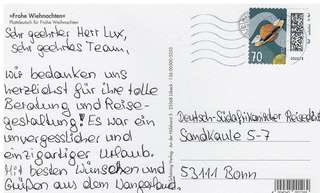 «Frohe Wiehnachten»
Plattdeutsch für Frohe Weihnachten
Sehr geehrter Herr Lux,
sehr geehrtes Team,
wir bedanken uns
herzlichst für ihre tolle
Beratung und Reise-
gestaltung! Es war ein
unvergesslicher und
einzigartiger Urlaub.
Mit besten Wünschen und
Grüßen aus dem Wangerland.
70
Deutsch-Südafrikanischer
Sandkaule 5-7
53111 Bonn